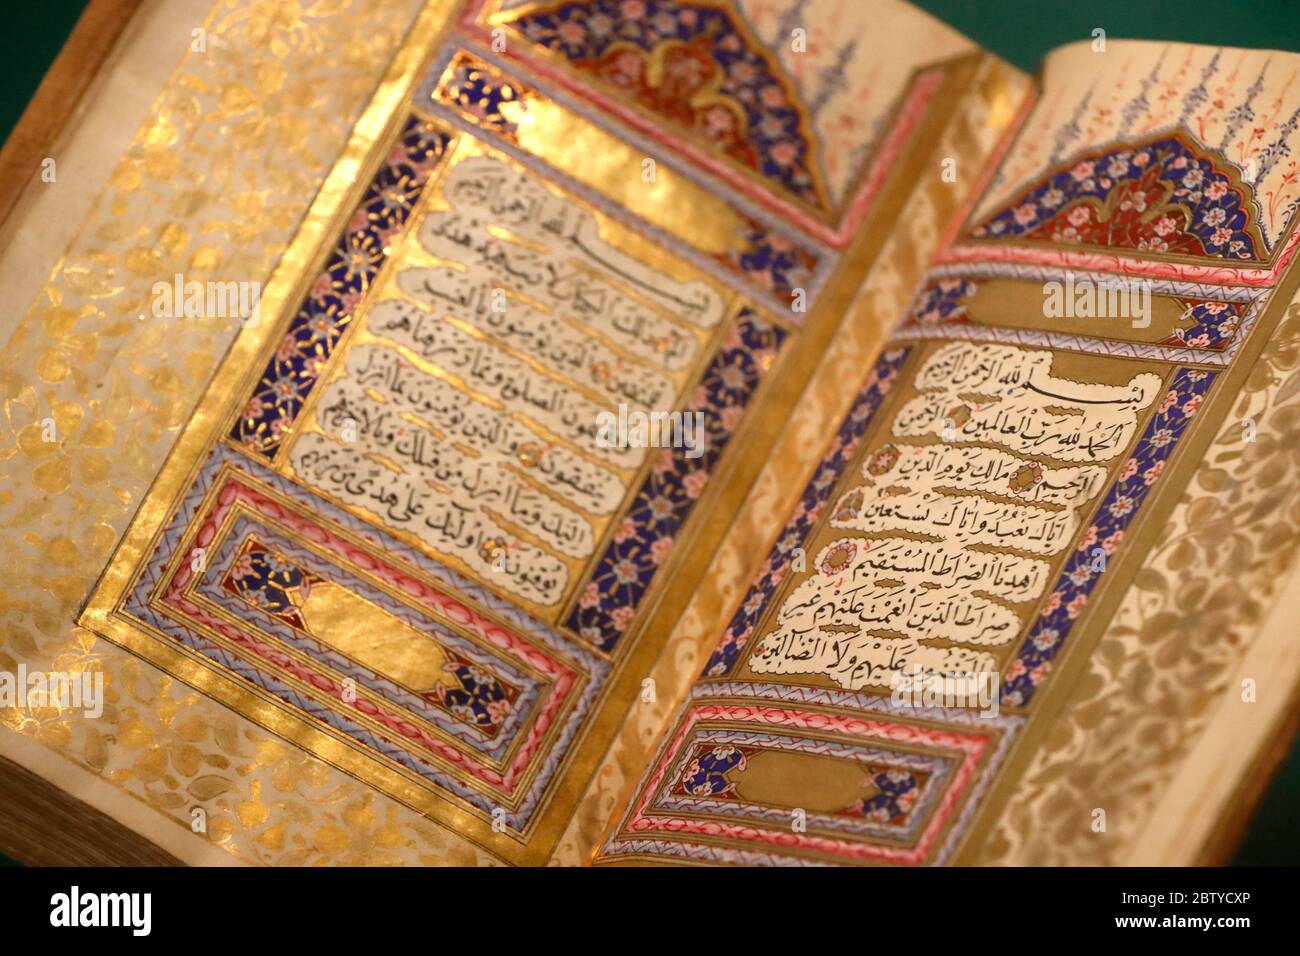 بسم الله الرحمن الرحيم
الحمد لله رب العالمين الرحمن
الرحيم مالك يوم الدين
اياك نعبد واياك نستعين
اهدنا الصراط المستقيم
صراط الذين انعمت عليهم غير
المغضوب عليهم ولا الضالين
بسم الله الرحمن الرحيم
الم ذلك الكتاب لا ريب فيه هدى
للمتقين الذين يؤمنون بالغيب
ويقيمون الصلوة ومما رزقناهم
ينفقون والذين يؤمنون بما انزل
اليك وما انزل من قبلك وبالاخرة هم
يوقنون اولئك على هدى من ربهم
alamy
Image ID: 2BTYCXP
www.alamy.com